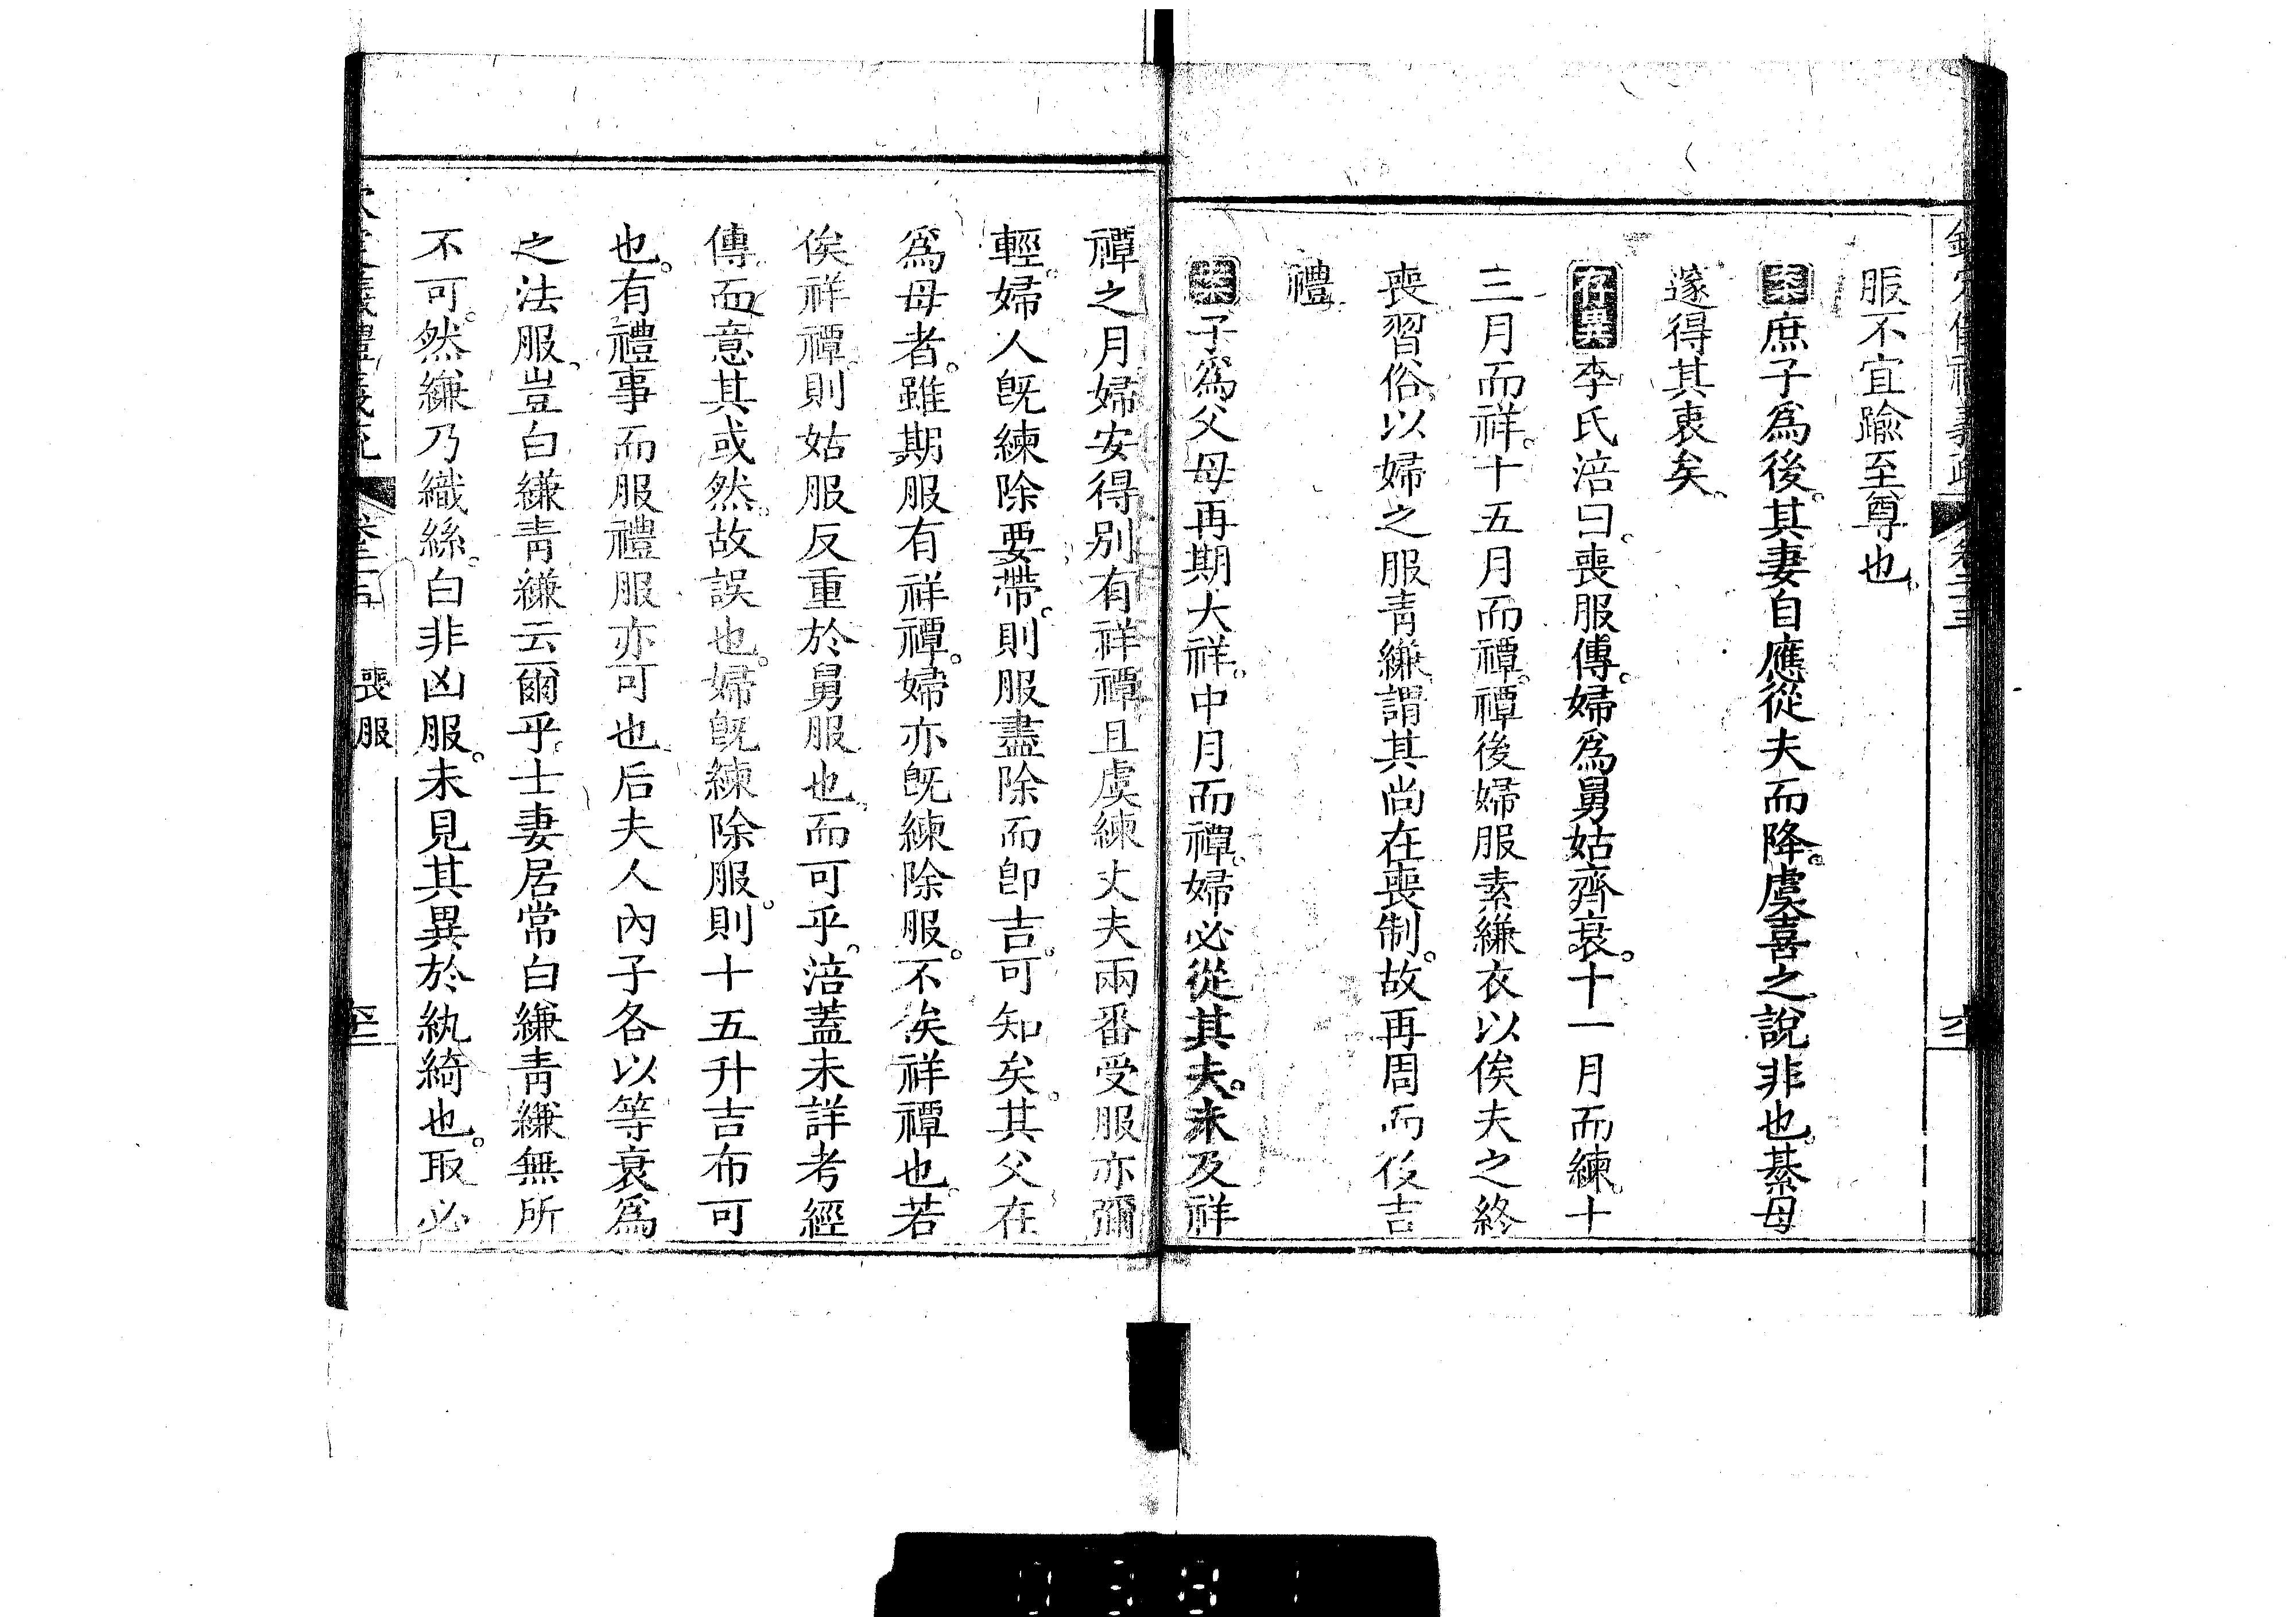 服不宜踰至尊也
案庶子爲後。其妻自應從夫而降。虞喜之說非也。綦母
邃得其衷矣。
存異李氏涪曰。喪服傳。婦爲舅姑齊衰。十一月而練。十
三月而祥。十五月而禫。禫後婦服素縑衣以俟夫之終
喪習俗以婦之服青縑謂其尚在喪制。故再周而後吉
禮
案子爲父母再期大祥。中月而禫。婦必從其夫。未及祥
禫之月婦安得別有祥禫且虞練丈夫兩番受服亦彌
輕。婦人既練除要帶。則服盡除而卽吉。可知矣。其父在
爲母者。雖期服有祥禫。婦亦既練除服。不俟祥禫也。若
俟祥禫則姑服反重於舅服也而可乎。涪蓋未詳考經
傳而意其或然。故誤也。婦既練除服。則十五升吉布可
也。有禮事而服禮服亦可也后夫人內子各以等衰爲
之法服。豈白縑青縑云爾乎。士妻居常白縑青縑無所
不可。然縑乃織絲。白非凶服。未見其異於紈綺也。取必
喪服